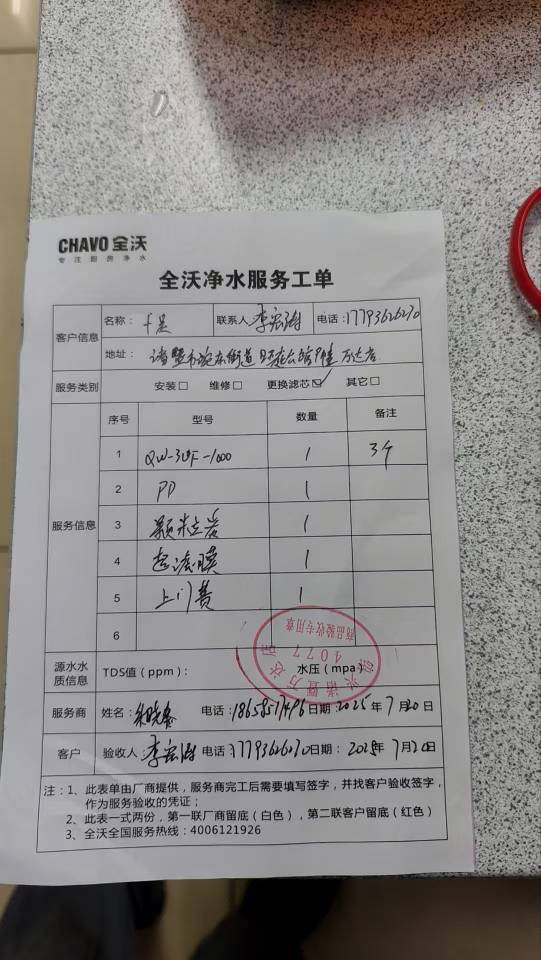 CHAVO 全沃
专注厨房净水
全沃净水服务工单
客户信息
名称： 十足 联系人 李宏涛 电话：17793626270
地址： 诸暨市 街道 万达店
服务类别 安装□ 维修□ 更换滤芯☑ 其它□
服务信息
序号 型号 数量 备注
1 QW-3UF-1000 1 3个
2 PP 1
3 颗粒炭 1
4 超滤膜 1
5 上门费 1
6
源水水质信息 TDS值（ppm）： 水压（mpa）
商品验收专用章
4077
服务商 姓名： 电话：18658517496 日期：2025年7月20日
客户 验收人：李宏涛 电话：17793626270 日期：2025年7月20日
注：1、此表单由厂商提供，服务商完工后需要填写签字，并找客户验收签字，
作为服务验收的凭证；
2、此表一式两份，第一联厂商留底（白色），第二联客户留底（红色）
3、全沃全国服务热线：4006121926